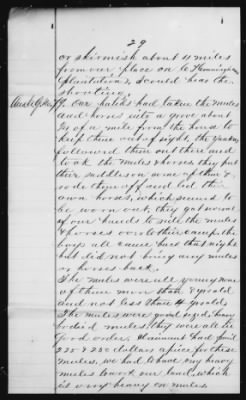 29
or skirmish about 4 miles
from our place on
plantation, I could hear the
shooting.
Our hands had taken the mules
and horses into a grove about
3/4 of a mile from the house to
keep them out of sight, the Yankees
followed them out there and
took the mules & horses they put
their saddles on some of them &
rode them off and led their
own horses, which seemed to
be worn out, they got some
of our hands to ride the mules
& horses over to their camp, the
boys all came back that night
but did not bring any mules
or horses back.
The mules were all young none
of them more than 8 yrs old
and not less than 4 yrs old.
The mules were good sized heavy
bodied mules, they were all in
good order, Claimant had paid
225 & 250 dollars apiece for these
mules, we had to have heavy
mules to work our land, which
is very heavy on mules